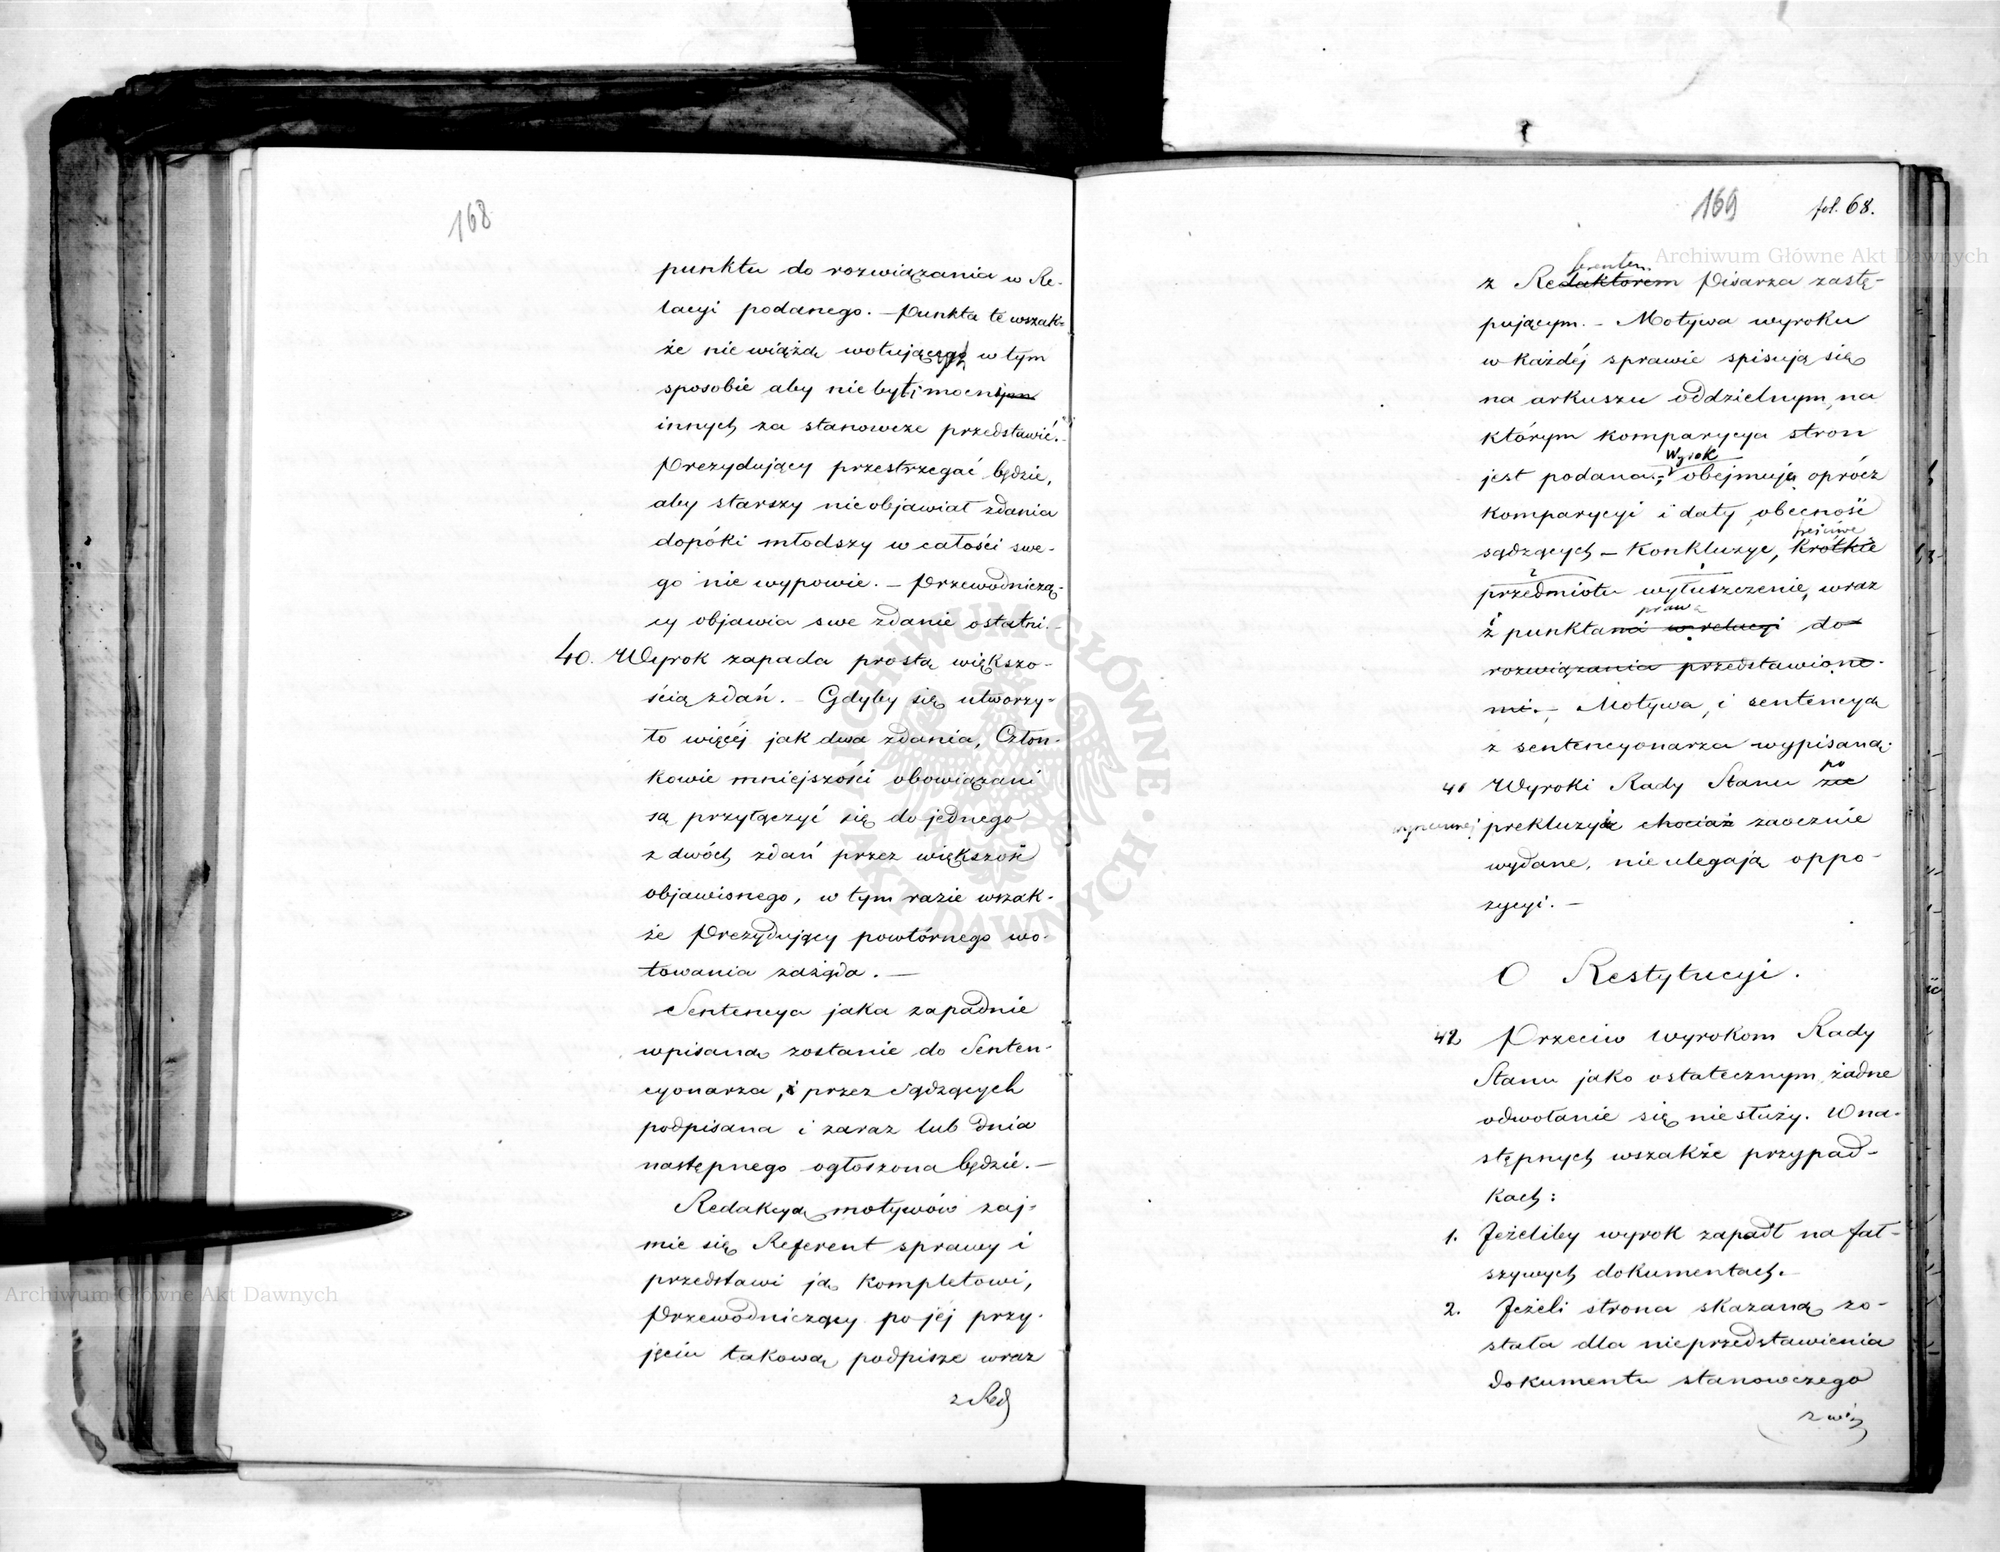 168
punktu do rozwiązania w Re-
lacyi podanego. – Punkta te wszak-
że nie wiążą wotującego w tym
sposobie aby nie był mocen
innych za stanowcze przedstawić.
Prezydujący przestrzegać będzie,
aby starszy nieobjawiał zdania
dopóki młodszy w całości swe-
go nie wypowie. – Przewodniczą-
cy objawia swe zdanie ostatni. –
40. Wyrok zapada prostą większo-
ścią zdań. – Gdyby się utworzy-
ło więcéj jak dwa zdania, Człon-
kowie mniejszości obowiązani
są przyłączyć się do jednego
z dwóch zdań przez większość
objawionego, w tym razie wszak-
że Prezydujący powtórnego wo-
towania zażąda. –
Sentencya jaka zapadnie
wpisaną zostanie do Senten-
cyonarza, i przez Sądzących
podpisana i zaraz lub dnia
następnego ogłoszona będzie. –
Redakcyą motywów zaj-
mie się Referent sprawy i
przedstawi ją kompletowi,
Przewodniczący po jéj przy-
jęciu takową podpisze wraz
z Red
169 fol. 68.
ferentem
z Redaktorem Pisarza zastę-
pującym. – Motywa wyroku
w każdéj sprawie spisują się
na arkuszu oddzielnym, na
którym komparycya stron
Wyrok
jest podana; obejmuje oprócz
komparycyi i daty, obecność
sądzących – Konkluzye, krótkie
przedmiotu wyłuszczenie, wraz
prawa
z punktami w relacyi do
rozwiązania przedstawione-
mi. – Motywa, i sentencyą
z sentencyonarza wypisaną.
po
41 Wyroki Rady Stanu za
prekluzyą chociaż zaocznie
wydane, nie ulegają oppo-
zycyi. –
O Restytucyi.
42 Przeciw wyrokom Rady
Stanu jako ostatecznym, żadne
odwołanie się nie służy. W na-
stępnych wszakże przypad-
kach:
1. Jeżeliby wyrok zapadł na fał-
szywych dokumentach. –
2. Jeżeli strona skazaną zo-
stała dla nieprzedstawienia
dokumentu stanowczego
z wi
Archiwum Główne Akt Dawnych
Archiwum Główne Akt Dawnych
ARCHIWUM GŁÓWNE AKT DAWNYCH